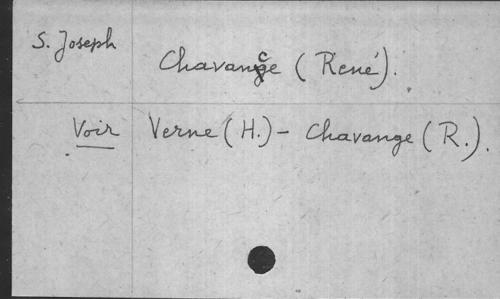 S. Joseph
Chavance (René).
Voir Verne (H.) - Chavange (R.).